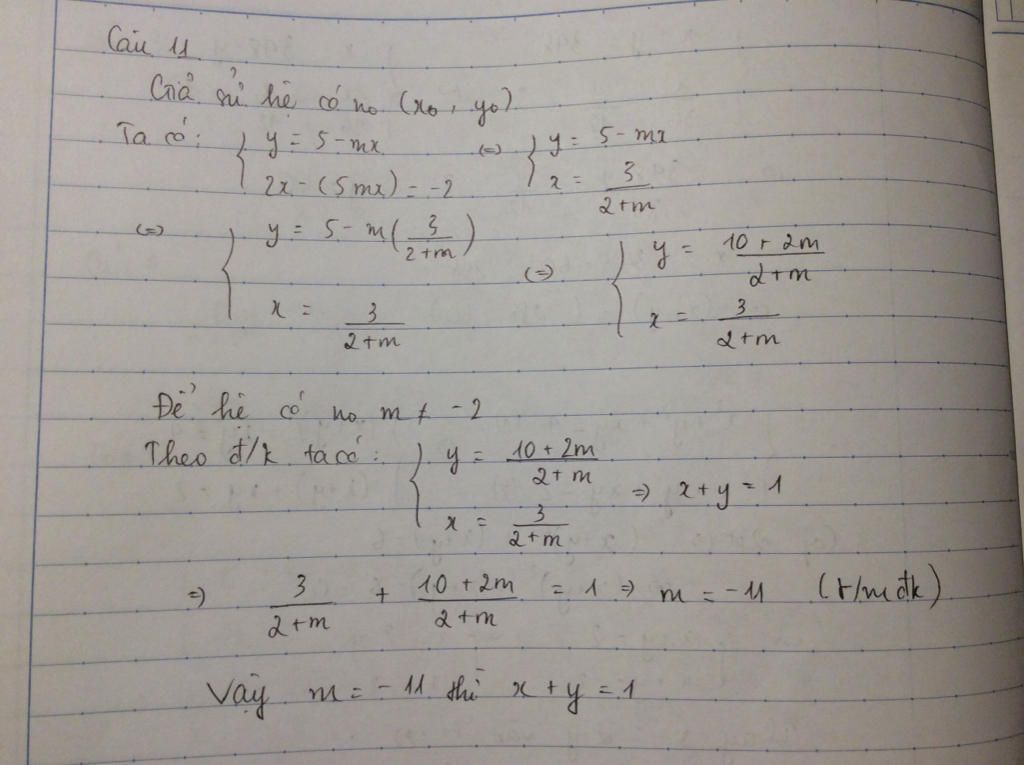 Câu 11
Giả sử hệ có no (x₀, y₀)
Ta có: { y = 5 - mx ; 2x - (5mx) = -2 (=) { y = 5 - mx ; x = 3/(2+m)
(=) { y = 5 - m(3/(2+m)) ; x = 3/(2+m) (=) { y = (10 + 2m)/(2+m) ; x = 3/(2+m)
Để hệ có no m ≠ -2
Theo đ/k ta có: { y = (10 + 2m)/(2+m) ; x = 3/(2+m) => x + y = 1
=> 3/(2+m) + (10 + 2m)/(2+m) = 1 => m = -11 (t/m đk)
Vậy m = -11 thì x + y = 1